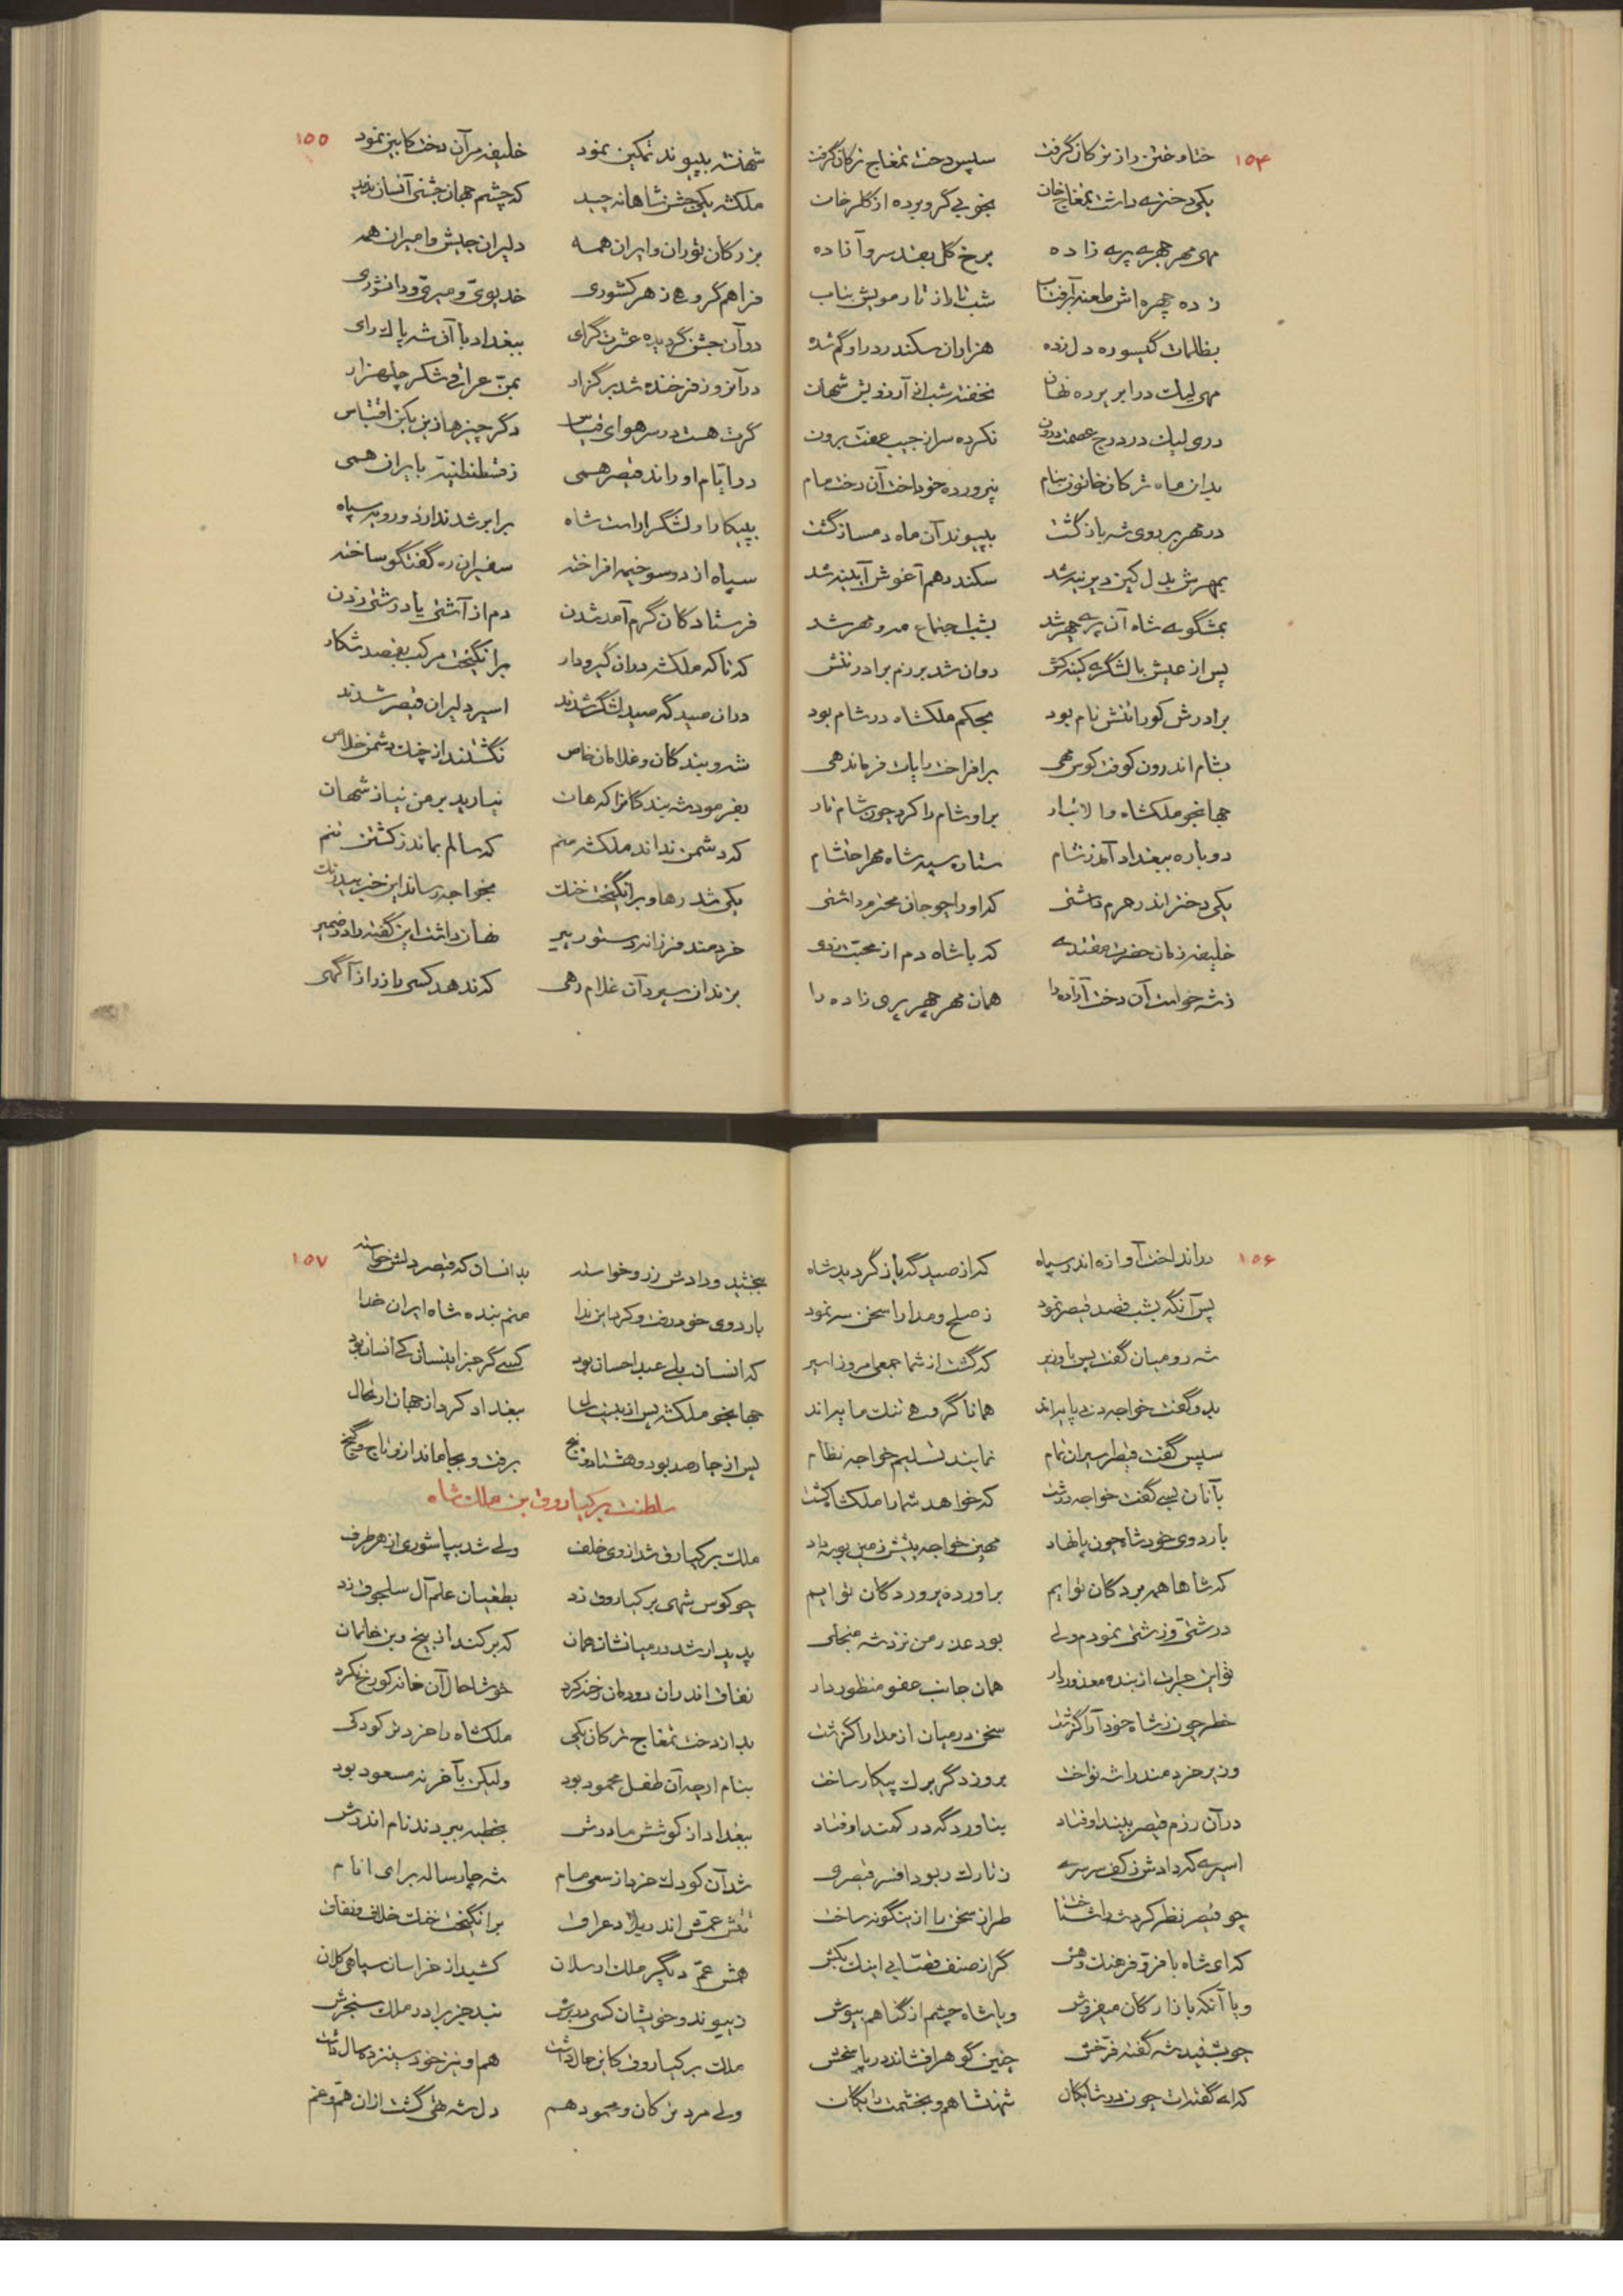 ۱۵۴
ختا و ختن را ز ترکان گرفت سپس دخت تمغاج ترکان گرفت
یکی دختری داشت تمغاج خان بخوبی گرو برده از گلرخان
مهی مهر چهری پری زاده برخ گل بقد سرو آزاده
زده چهره اش طعنه بر آفتاب شب تار از تار مویش بتاب
بظلمات گیسو ره دل زده هزاران سکندر در او گم شده
مهی لیک در ابر پرده نهان نخفته شبی ز آرزویش شهان
دری لیک در درج عصمت درون نکرده سر از جیب عفت برون
بدان ماه ترکان خاتون بنام بپرورده خود دخت آن دخت مام
در مهر بر روی شه باز گشت بپیوند آن ماه دمساز گشت
بمهرش بدل کین دیرینه شد سکندر هم آغوش آیینه شد
بمشگوی شاه آن پری چهر شد بشب اجتماع مه و مهر شد
پس از عیش با لشگر کینه کش روان شد برزم برادر تتش
برادرش کو را تتش نام بود بحکم ملکشاه در شام بود
بشام اندرون کوفت کوس مهی برافراخت رایات فرماندهی
جهانجو ملکشاه والا تبار بر او شام را کرد چون شام تار
دوباره ببغداد آمد ز شام ستاره سپه شاه مهر احتشام
یکی دختر اندر حرم داشتی که او را چو جان محترم داشتی
خلیفه زمان حضرت مقتدی که با شاه دم از محبت زدی
ز شه خواست آن دخت آزاده را همان مهر چهر پری زاده را
۱۵۵
شهنشه بپیوند تمکین نمود خلیفه مر آن دخت کابین نمود
ملکشه یکی جشن شاهانه چید که چشم جهان جشنی آنسان ندید
بزرگان توران و ایران همه دلیران جیش و امیران همه
فراهم گروهی ز هر کشوری خدیوی و میری و دانشوری
در آن جشن گردیده عشرت گرای ببغداد با آن شه پاک رای
در آنروز فرخنده شد برگزار بمن عراقی شکر چل هزار
گرت هست در سر هوای قیاس دگر چیزها زین یکی اقتباس
در ایام او راند قیصر همی ز قسطنطنیه بایران همی
بپیکار او لشگر آراست شاه برابر شدند از دو رویه سپاه
سپاه از دو سو خیمه افراخته سفیران ره گفتگو ساخته
فرستادگان گرم آمد شدن دم از آشتی یا درشتی زدن
که ناگه ملکشه در آن گیر و دار برانگیخت مرکب بقصد شکار
در آن صیدگه صید لشگر شدند اسیر دلیران قیصر شدند
شه و بندگان و غلامان خاص نگشتند از چنگ دشمن خلاص
بفرمود شه بندگانرا که هان نیارید بر من نیاز شهان
که دشمن نداند ملکشه منم که سالم بماند ز کشتن تنم
یکی شد رها و برانگیخت خنگ بخواجه رساند این خبر بیدرنگ
خردمند فرزانه دستور پیر نهان داشت این گفته را در ضمیر
بزندان سپرد آن غلام رهی که ندهد کسی را ز راز آگهی
۱۵۶
در انداخت آوازه اندر سپاه که از صیدگه باز گردید شاه
پس آنگه بشب قصد قیصر نمود ز صلح و مدارا سخن سر نمود
شه رومیان گفت پس با وزیر که گشت از شما جمعی امروز اسیر
بدو گفت خواجه همانا گروهی
سپس گفت قیصر اسیران تمام نمایند تسلیم خواجه نظام
بآنان بسی گفت خواجه درشت که خواهد شما را ملکشاه کشت
باردوی خود شاه چون پا نهاد مهین خواجه پیشش زمین بوسه داد
که شاها همه بردگان توایم برآورده پروردگان توایم
درشتی و زشتی نمودم ولی بود عذر من نزد شه منجلی
تو این جرات از بنده معذور دار همان جانب عفو منظور دار
خطر چون ز شاه خود آرا گذشت سخن در میان از مدارا گذشت
وزیر خردمند را شه نواخت بروز دگر برگ پیکار ساخت
در آن رزم قیصر ببند اوفتاد بناوردگه در کمند اوفتاد
اسیری که دادش ز کف سرسری ز تارک ربود افسر قیصری
چو قیصر نظر کرد شه را شناخت طراز سخن را از اینگونه ساخت
که ای شاه با فر و فرهنگ و هش گر از صنف قصابی اینک بکش
و یا آنکه بازارگان میفروش و یا شاه چشم از گناهم بپوش
چو بشنید شه گفته فرخش چنین گوهر افشاند در پاسخش
که ای گفته‌ات چون در شایگان شهنشاهم و بخشمت رایگان
۱۵۷
ببخشید و دادش زر و خواسته بدانسان که قیصر دلش خواسته
باردوی خود رفت و کرد این ندا منم بنده شاه ایران خدا
که انسان بلی عبد احسان بود کسی گر جز اینسان کی انسان بود
جهانجو ملکشه پس از بیست سال ببغداد کرد از جهان ارتحال
پس از چارصد بود و هشتاد و پنج برفت و بجا ماند ازو تاج و گنج
سلطنت برکیاروق بن ملک شاه
ملک برکیارق شد از وی خلف ولی شد بپا شوری از هر طرف
چو کوس شهی برکیاروق زد بطغیان علم آل سلجوق زد
پدیدار شد در میانشان همان که برکند از بیخ و بن خانمان
نفاق اندران دودمان رخنه کرد خوشا حال آن خانه کو رخ نکرد
بد از دخت تمغاج ترکان یکی ملکشاه را خردتر کودکی
بنام ارچه آن طفل محمود بود ولیکن بآخر نه مسعود بود
ببغداد از کوشش مادرش بخطبه ببردند نام اندرش
شد آن کودک خرد از سعی مام شه چارساله برای انام
تتش عمش اندر بلاد عراق برانگیخت خنگ خلاف و نفاق
همش عم دیگر ملک ارسلان کشید از خراسان سپاهی کلان
ز پیوند و خویشان کسی در برش نبد جز برادر ملک سنجرش
ملک برکیاروق کاین حال داشت هم او نیز خود سینزده سال داشت
ولی مرد ترکان و محمود هم دل شه تهی گشت از ان هم و غم